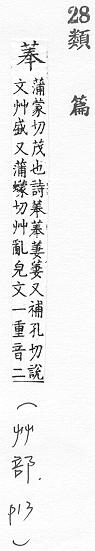 28類篇
菶
蒲蒙切茂也詩菶菶萋萋又補孔切說
文艸盛又蒲蠓切艸亂皃文一重音二
(艸部. p13)